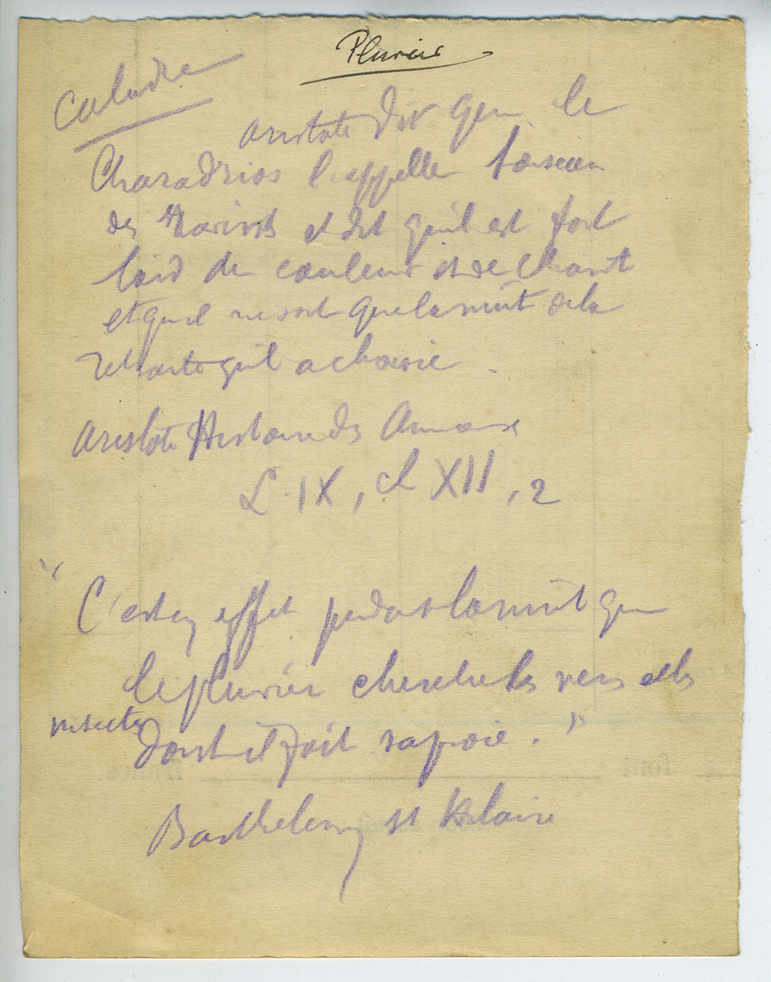 Pluvier
Caladre
Aristote dit que le
Charadrios l'appelle l'oiseau
des et dit qu'il est fort
laid de couleur et de chant
et qu'il ne sort que la nuit de la
retraite qu'il a choisie.
Aristote Histoire des Animaux
L. IX, ch XII, 2
"C'est en effet pendant la nuit que
le pluvier cherche les vers et les
insectes dont il fait sa proie."
Barthelemy St Hilaire